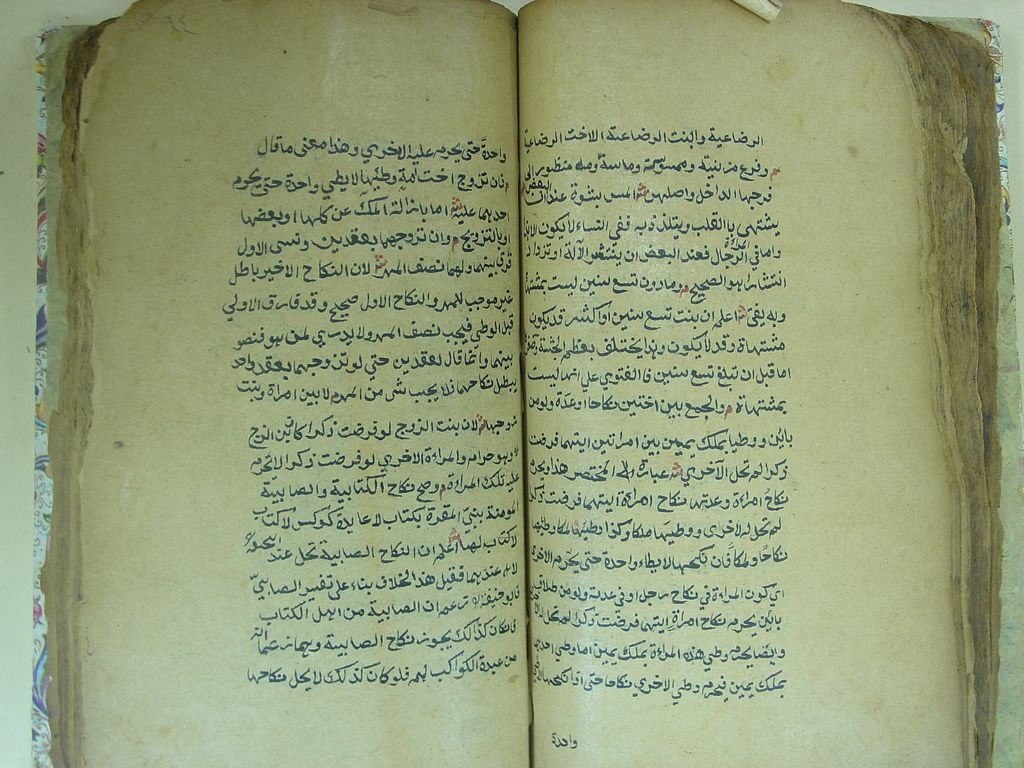 الرضاعية والبنت الرضاعية الاخت الرضاعية
م وفرع مزنيته وممسوسته وماسته ومنظور الى
فرجها الداخل واصلهن ش المس بشهوة عند البعض ان
يشتهي بالقلب ويتلذذ به ففي النساء لا يكون الا هذا
واما في الرجال فعند البعض ان ينتشر الآلة او تزداد
انتشارا هو الصحيح م وما دون تسع سنين ليست بمشتهاة
وبه يفتى ش اعلم ان بنت تسع سنين او اكثر قد يكون
مشتهاة وقد لا يكون وهذا يختلف بعظم الجثة
اما قبل ان تبلغ تسع سنين فالفتوى على انها ليست
بمشتهاة م والجمع بين اختين نكاحا وعدة ولو من
بائن ووطيا بملك يمين بين امراتين ايتهما فرضت
ذكرا لم تحل له الاخرى ش عبارة المختصر هذا وبحرم
نكاح امراة وعدتها نكاح امراة ايتهما فرضت ذكرا
لم تحل له الاخرى ووطيها ملكا وكذا وطيها ملكا وطيها
نكاحا وملكا فان نكحها لا يطاء واحدة حتى يحرم الاخرى
اى كون المراءة في نكاح رجل او في عدته ولو من طلاق
بائن يحرم نكاح امراة ايتهما فرضت ذكرا لم تحل له الا
وايضا يحرم وطي هذه المراءة بملك يمين اما وطي احديهما
بملك يمين فيحرم وطي الاخرى نكاحا حتى
واحدة
واحدة حتى يحرم عليه الاخرى وهذا معنى ما قال
م فان تزوج اخت امة وطيها لا يطي واحدة حتى يحرم
احديهما عليه ش اما بازالة الملك عن كلها او بعضها
او بالتزويج م وان تزوجهما بعقدين ونسى الاول
فرق بينهما ولهما نصف المهر ش لان النكاح الاخير باطل
غير موجب للمهر والنكاح الاول صحيح وقد فارق الاولى
قبل الوطي فيجب نصف المهر ولا يدرى لمن هو فنصف
بينهما وانما قال بعقدين حتى لو تزوجهما بعقد واحد
يبطل نكاحهما فلا يجب شى من المهر م لا بين امراة وبنت
زوجها ش لان بنت الزوج لو فرضت ذكرا كان ابن الزوج
وهو حرام والمراءة الاخرى لو فرضت ذكرا لا تحرم
عليه تلك المراءة م وصح نكاح الكتابية والصابية
المومنة بنبى المقرة بكتاب لا عابدة كوكب لا كتاب
لا كتاب لها ش اعلم ان النكاح الصابية تحل عند
لا عندهما فقيل هذا الخلاف بناء على تفسير الصابي
فابو حنيفة زعم ان الصابية من اهل الكتاب
فان كان كذلك يجوز نكاح الصابية وهما زعما انه
من عبدة الكواكب لهم فلو كان كذلك لا يحل نكاحها